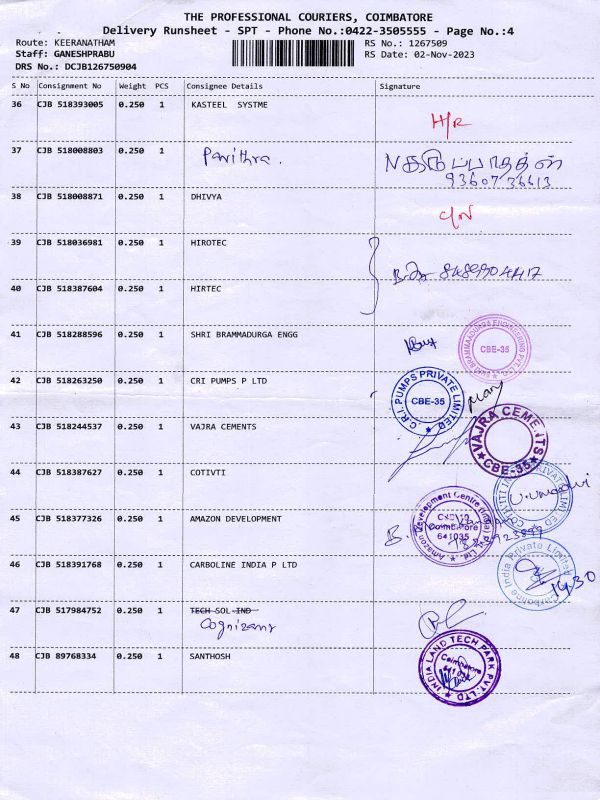 THE PROFESSIONAL COURIERS, COIMBATORE
Delivery Runsheet - SPT - Phone No.:0422-3505555 - Page No.:4
Route: KEERANATHAM RS No.: 1267509
Staff: GANESHPRABU RS Date: 02-Nov-2023
DRS No.: DCJB126750904
S No Consignment No Weight PCS Consignee Details Signature
36 CJB 518393005 0.250 1 KASTEEL SYSTME
H/R
37 CJB 518008803 0.250 1 Pavithra.
9360736613
38 CJB 518008871 0.250 1 DHIVYA
39 CJB 518036981 0.250 1 HIROTEC
40 CJB 518387604 0.250 1 HIRTEC
41 CJB 518288596 0.250 1 SHRI BRAMMADURGA ENGG
CBE-35
42 CJB 518263250 0.250 1 CRI PUMPS P LTD
C.R.I. PUMPS PRIVATE LIMITED
CBE-35
43 CJB 518244537 0.250 1 VAJRA CEMENTS
VAJRA CEMENTS
CBE-35
44 CJB 518387627 0.250 1 COTIVTI
45 CJB 518377326 0.250 1 AMAZON DEVELOPMENT
Amazon Development Centre (India) Pvt. Ltd
Coimbatore
641035
46 CJB 518391768 0.250 1 CARBOLINE INDIA P LTD
Carboline India Private Limited
14.30
47 CJB 517984752 0.250 1 TECH SOL IND
48 CJB 89768334 0.250 1 SANTHOSH
INDIA LAND TECH PARK PVT. LTD
Coimbatore